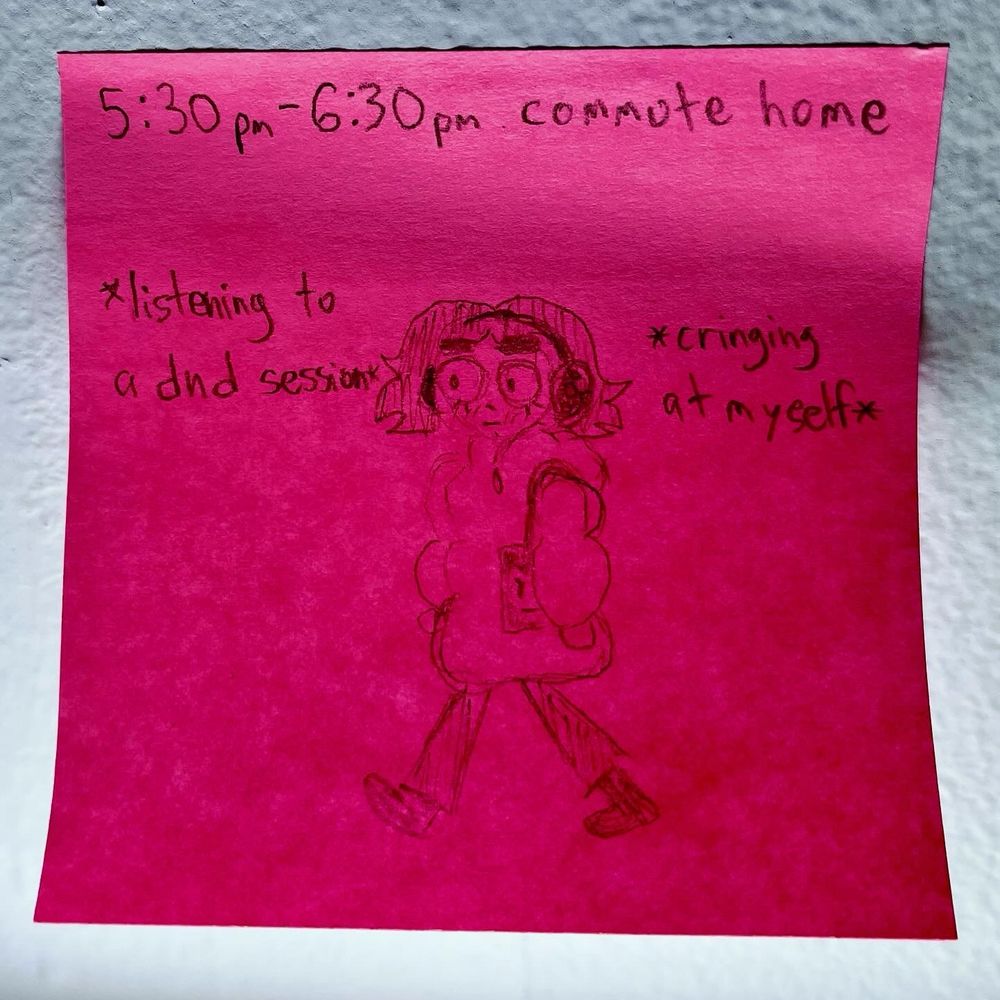 5:30pm - 6:30pm commute home
*listening to
a dnd session*
*cringing
at myself*